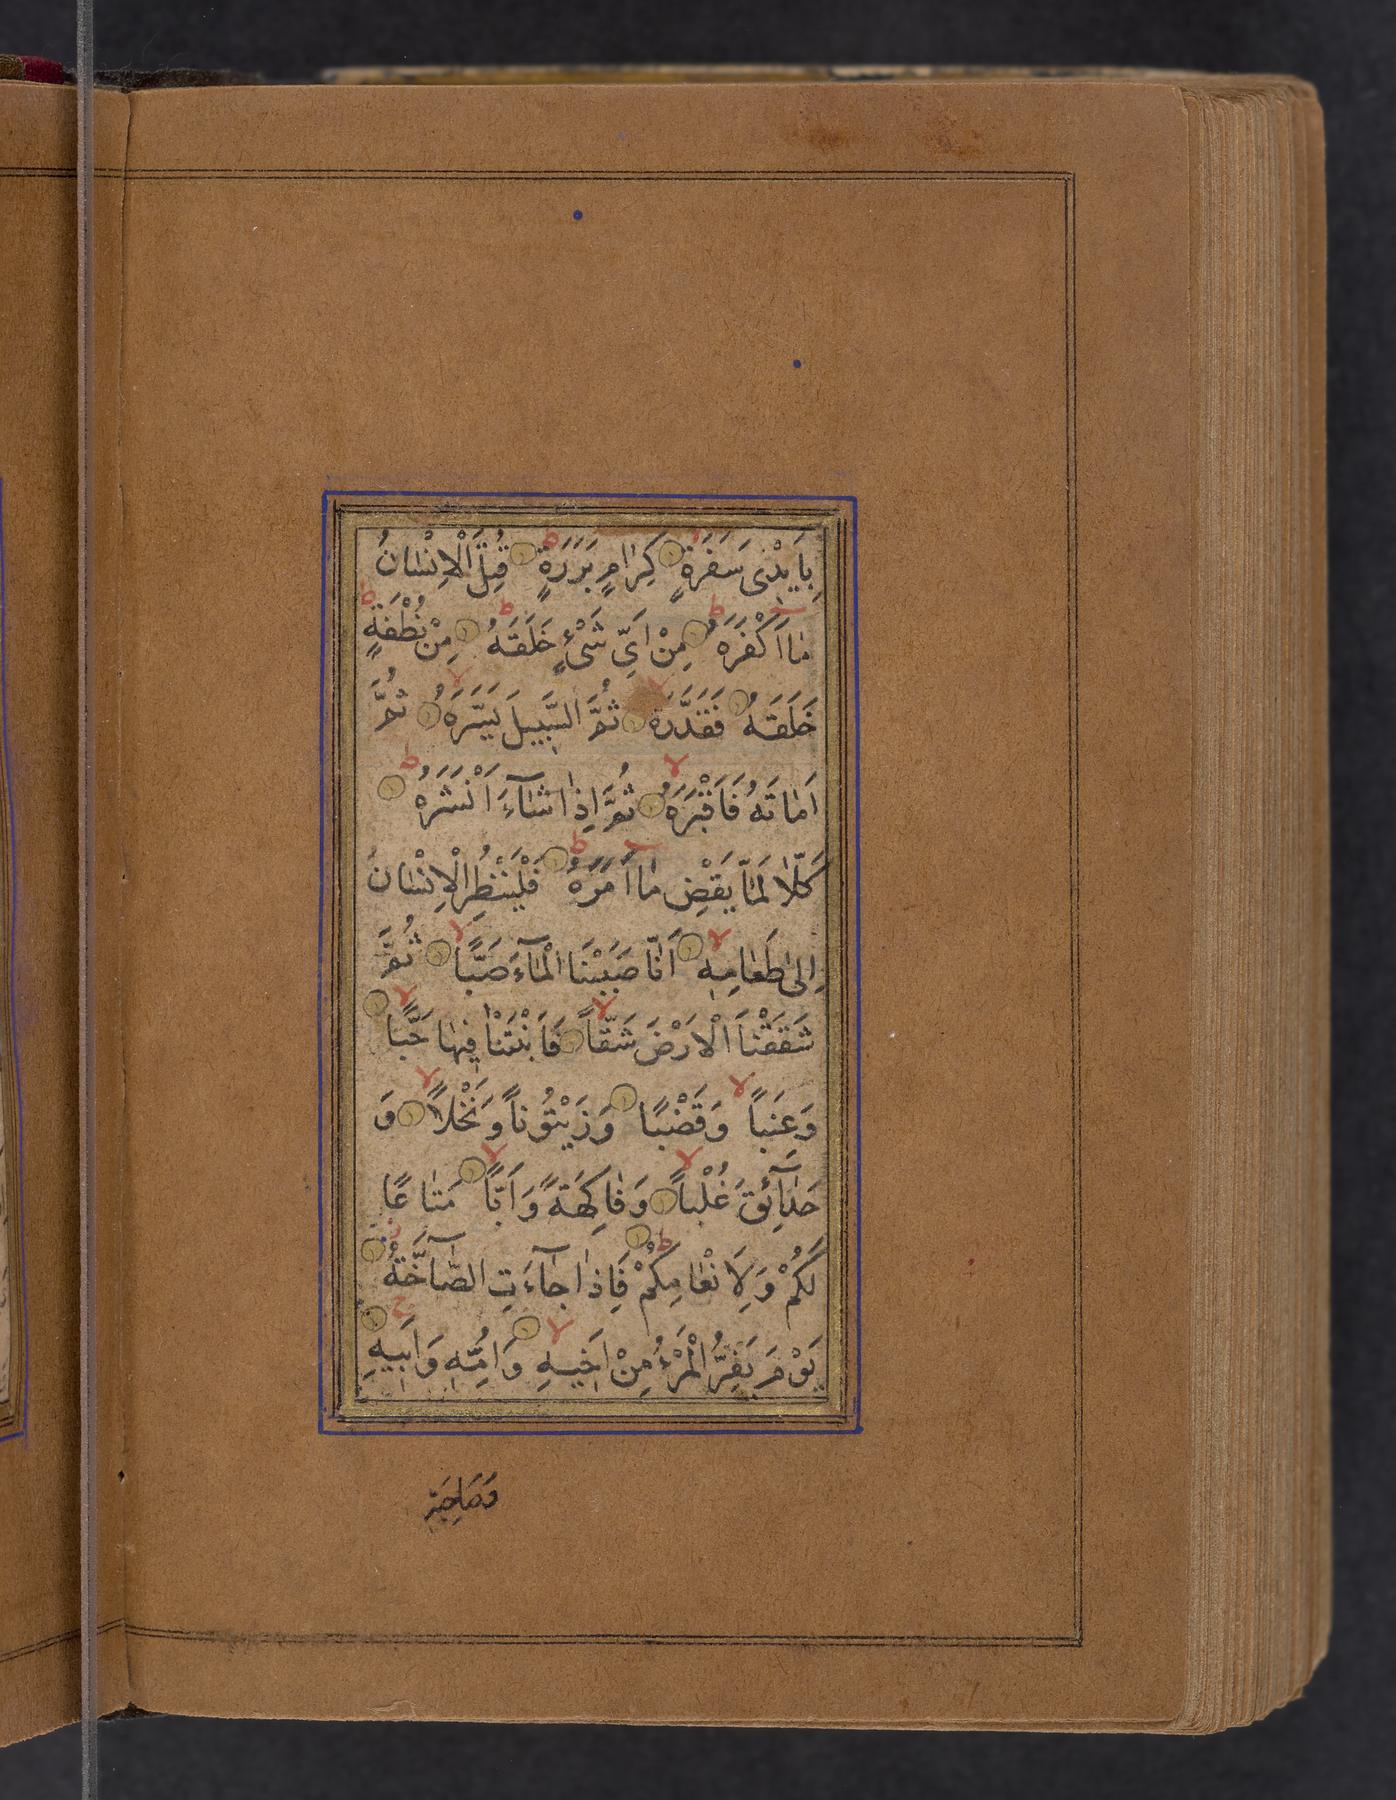 بِاَيْدٖى سَفَرَةٍ كِرٰامٍ بَرَرَةٍ قُتِلَ الْاِنْسٰانُ
مٰا اَكْفَرَهُ مِنْ اَىِّ شَىْءٍ خَلَقَهُ مِنْ نُطْفَةٍ
خَلَقَهُ فَقَدَّرَهُ ثُمَّ السَّبٖيلَ يَسَّرَهُ ثُمَّ
اَمٰاتَهُ فَاَقْبَرَهُ ثُمَّ اِذٰا شٰآءَ اَنْشَرَهُ
كَلّٰا لَمّٰا يَقْضِ مٰا اَمَرَهُ فَلْيَنْظُرِ الْاِنْسٰانُ
اِلىٰ طَعٰامِهٖ اَنّٰا صَبَبْنَا الْمٰآءَ صَبًّا ثُمَّ
شَقَقْنَا الْاَرْضَ شَقّاً فَاَنْبَتْنٰا فٖيهٰا حَبًّا
وَعِنَباً وَقَضْبًا وَزَيْتُوناً وَنَخْلاً وَ
حَدٰآئِقَ غُلْباً وَفٰاكِهَةً وَاَبّاً مَتٰاعًا
لَكُمْ وَلِاَنْعٰامِكُمْ فَاِذٰا جٰآءَتِ الصّٰآخَّةُ
يَوْمَ يَفِرُّ الْمَرْءُ مِنْ اَخٖيهِ وَاُمِّهٖ وَاَبٖيهِ
وَصَاحِبَتِهٖ